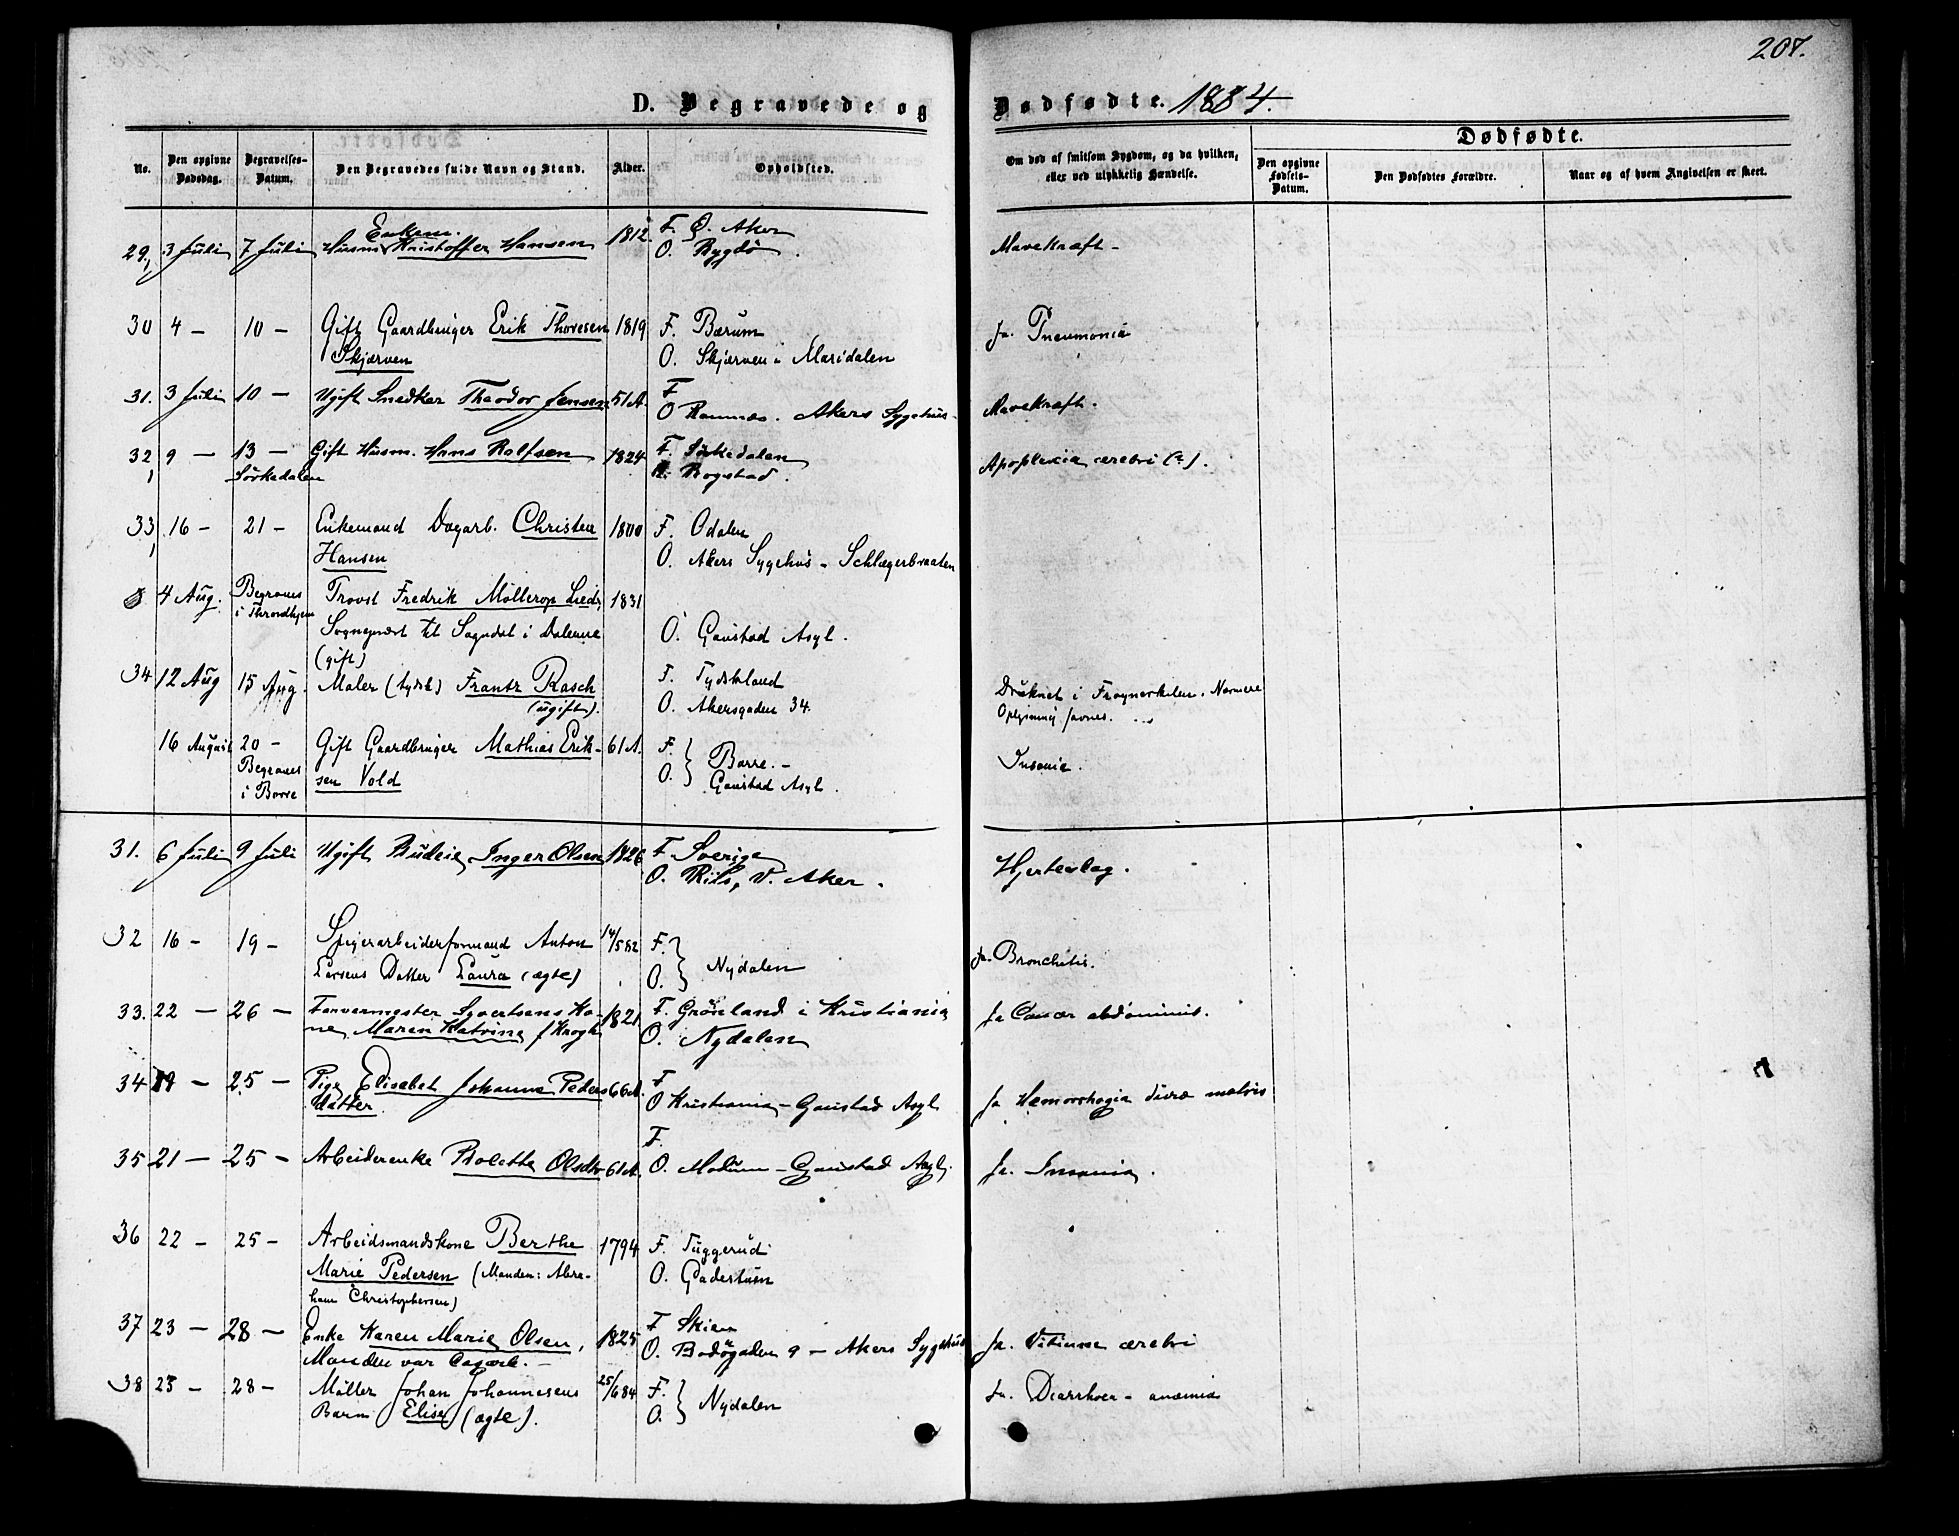 207.
D. Begravede og Dødfødte. 1884.
No.
Den opgivne Dødsdag.
Begravelses-Datum.
Den Begravedes fulde Navn og Stand.
Alder.
Opholdssted.
Om død af smitsom Sygdom, og da hvilken, eller ved ulykkelig Hændelse.
Dødfødte.
Den opgivne Fødsels-Datum.
Den Dødfødtes Forældre.
Naar og af hvem Angivelsen er skeet.
Enkem. 1812 F. Ø. Aker
29, 3 Juli 7 Juli Husm. Kristoffer Hansen O. Bygdö. Mavekræft -
30 4 - 10 - Gift Gaardbruger Erik Thoresen 1819 F. Bærum ja. Pneumonia
Skjærven O. Skjærven i Maridalen
31. 3 Juli 10 - Ugift Snedker Theodor Jensen 51 A. F
O Romnæs. Akers Sygehus - Mavekræft.
32, 9 - 13 - Gift Husm. Hans Rolfsen 1824 F. Sörkedalen Apoplexia cerebri (?).
Sörkedalen O. Bogstad.
33, 16 - 21 - Enkemand Dagarb. Christen 1800 F. Odalen
Hansen O. Akers Sygehus - Schlægerbraaten
4 Aug. Begraves Provst Fredrik Möllerop Lied, 1831
i Throndhjem Sogneprest til Sogndal i Dalerne O. Gaustad Asyl.
(gift)
34 12 Aug 15 Aug. Maler (tydsk) Frantz Rasch F. Tydskland Druknet i Frognerkilen. Nærmere
(ugift). O. Akersgaden 34. Oplysning savnes.
16 August 20 - Gift Gaardbruger Mathias Erik- 61 A. F. Borre. - Insania.
Begraves sen Vold O. Gaustad Asyl.
i Borre
31. 6 Juli 9 Juli Ugift Budeie Inger Olsen 1826 F. Sverige Hjerteslag.
O. Riis, V. Aker.
32 16 - 19 - Spigerarbeiderformand Anton 14/5 82 F. ja. Bronchitis.
Larsens Datter Laura (ægte) O. Nydalen
33. 22 - 26 - Farvermester Syvertsens Ko- 1821 F. Grönland i Kristiania ja Cancer abdominis.
ne Maren Katrine f Krogh O. Nydalen
34 19 - 25 - Pige Elisabet Johanne Peders 66 A. F
datter O Kristiania - Gaustad Asyl ja Hæmorrhagia duræ matris
35 21 - 25 - Arbeiderenke Bolette Olsdtr 61 A. F.
O. Modum - Gaustad Asyl. ja. Insania.
36 22 - 25 - Arbeidsmandskone Berthe 1794 F. Tuggerud
Marie Pedersen (Manden: Abra- O. Gaderhúen
ham Christophersen)
37 23 - 28 - Enke Karen Marie Olsen, 1825 F Skien
Manden var Dagarb. - O. Bodögaden 9 - Akers Sygehus ja. Vitium cerebri
38 25 - 28 - Möller Johan Johannesens 25/6 84 F. ja. Diarrhoea - anæmia
Barn Elise (ægte). O. Nydalen